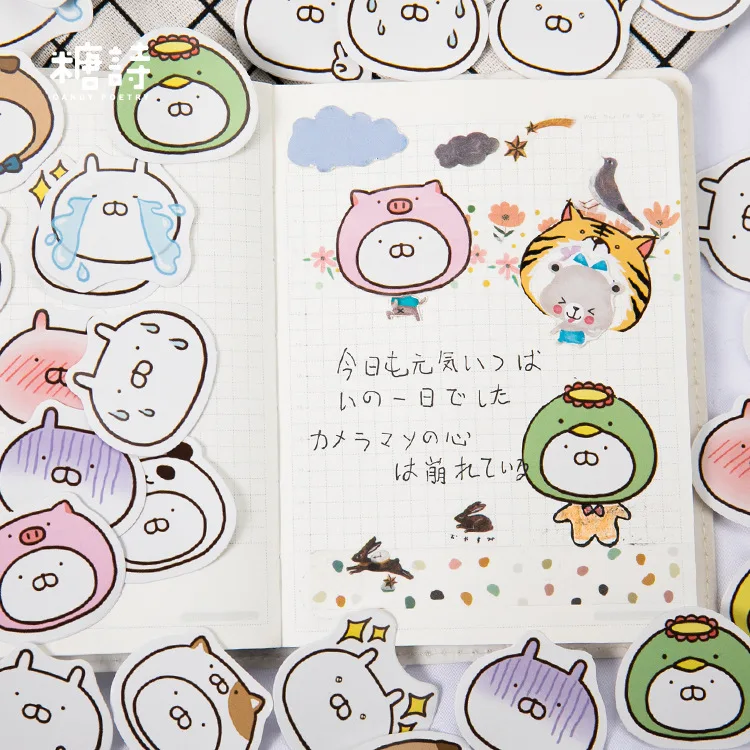 糖詩
CANDY POETRY
今日も元気いっぱ
いの一日でした
カメラマンの心
は崩れている
おやすみ